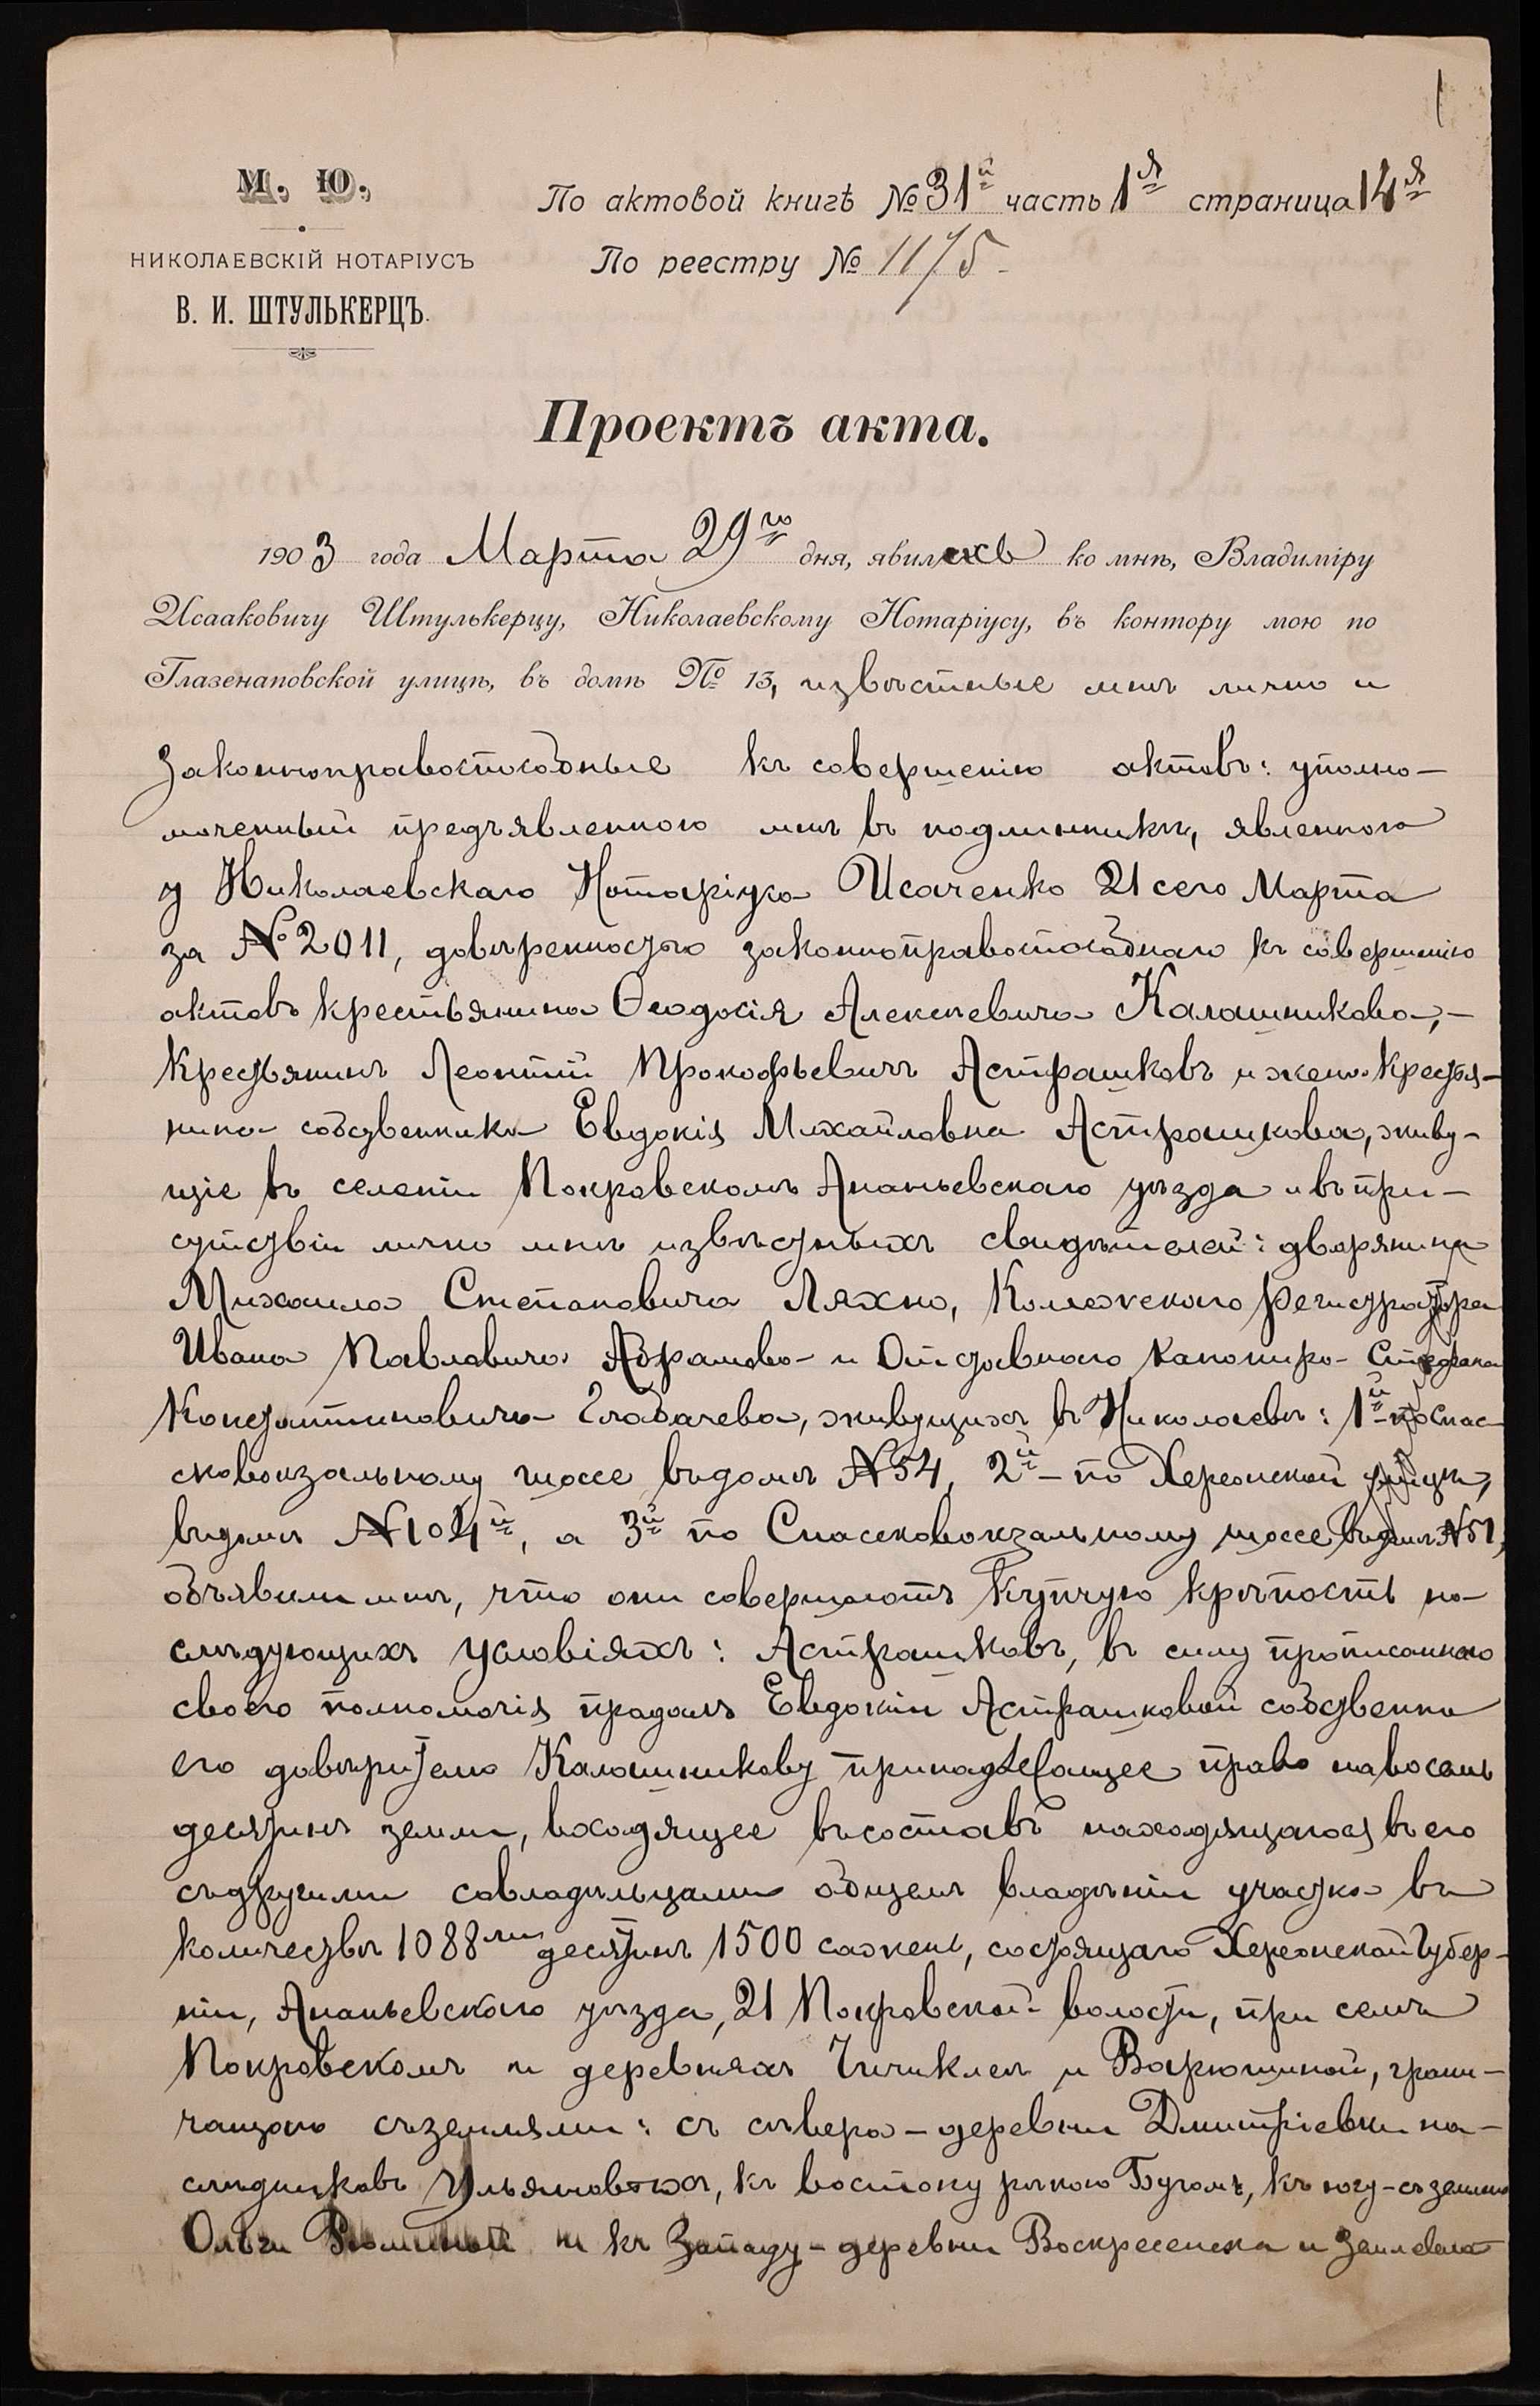 1
М. Ю.
НИКОЛАЕВСКІЙ НОТАРІУСЪ
В. И. ШТУЛЬКЕРЦЪ.
По актовой книгѣ № 31й часть 1я страница 14я
По реестру № 1175
Проектъ акта.
1903 года Марта 29го дня, явились ко мнѣ, Владиміру
Исааковичу Штулькерцу, Николаевскому Нотаріусу, въ контору мою по
Глазенаповской улицѣ, въ домѣ № 13, извѣстные мнѣ лично и
законноправоспособные къ совершенію актовъ: уполно-
моченный предъявленною мнѣ въ подлинникѣ, явленною
у Николаевскаго Нотаріуса Исаченко 21 сего Марта
за № 2011, довѣренностью законноправоспособнаго къ совершенію
актовъ крестьянина Ѳеодосія Алексѣевича Калашникова,-
крестьянинъ Леонтій Прокофьевичъ Астрашковъ и жена крестья-
нина собственника Евдокія Михайловна Астрашкова, живу-
щіе въ селеніи Покровскомъ Ананьевскаго уѣзда и въ при-
сутствіи лично мнѣ извѣстныхъ свидѣтелей: дворянина
Михаила Степановича Ляхно, Коллежскаго Регистратора
Ивана Павловича Абрамова и Отставнаго канонира Стефана
Константиновича Глобачева, живущихъ въ Николаевѣ: 1й по Спас-
сковокзальному шоссе въ домѣ № 54, 2й - по Херсонской улицѣ,
въ домѣ № 104й, а 3й по Спассковокзальному шоссе въ домѣ № 51,
объявили мнѣ, что они совершаютъ купчую крѣпость на
слѣдующихъ условіяхъ: Астрашковъ, въ силу прописаннаго
своего полномочія продалъ Евдокіи Астрашковой собственно
его довѣрителю Калашникову принадлежащее право на восемь
десятинъ земли, входящее въ составъ находящагося въ его
съ другими совладѣльцами общемъ владѣніи участка въ
количествѣ 1088ми десятинъ 1500 сажень, состоящаго Херсонской Губер-
ніи, Ананьевскаго уѣзда, 21 Покровской волости, при селѣ
Покровскомъ и деревняхъ Чичиклеѣ и Варюшиной, грани-
чащаго съ землями: съ сѣвера - деревни Дмитріевки на-
слѣдниковъ Ульяновыхъ, къ востоку рѣкою Бугомъ, къ югу - съ землею
Ольги и къ Западу - деревни Воскресенска и